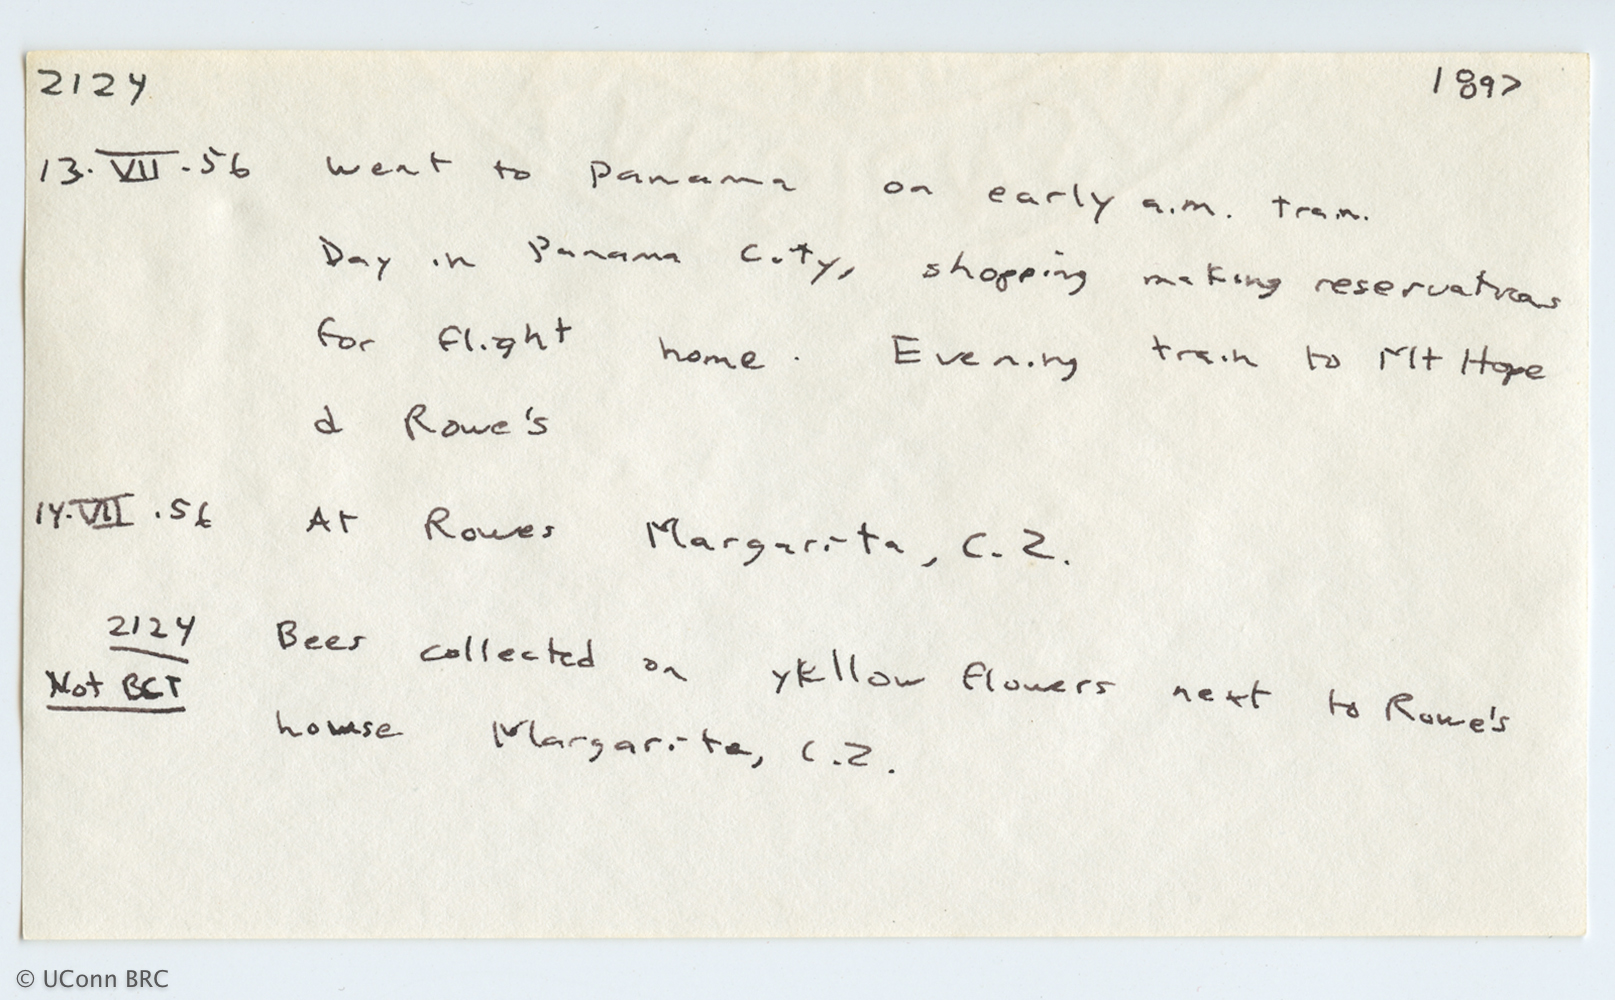 2124 1897
13.VII.56 Went to Panama on early a.m. train.
Day in Panama City, shopping making reservations
for flight home. Evening train to Mt Hope
& Rowe's
14.VII.56 At Rowes Margarita, C.Z.
2124 Bees collected on yellow flowers next to Rowe's
Not BCI house Margarita, C.Z.
© UConn BRC